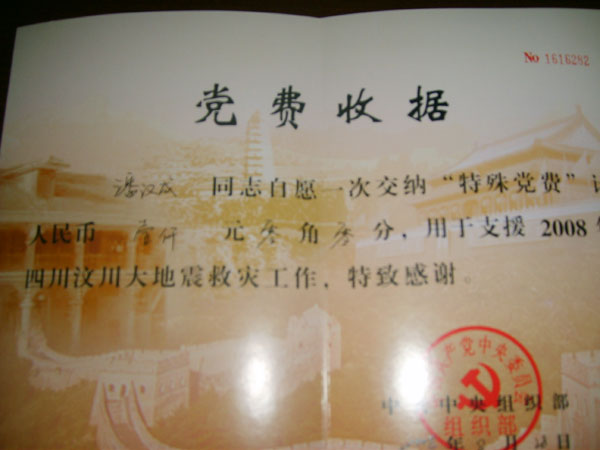 No 1616282
党费收据
潘汉成 同志自愿一次交纳“特殊党费”计
人民币 壹仟 元 零 角 零 分，用于支援 2008 年
四川汶川大地震救灾工作，特致感谢。
产党中央委员
组织部
中 中央组织部
年 8 月 日